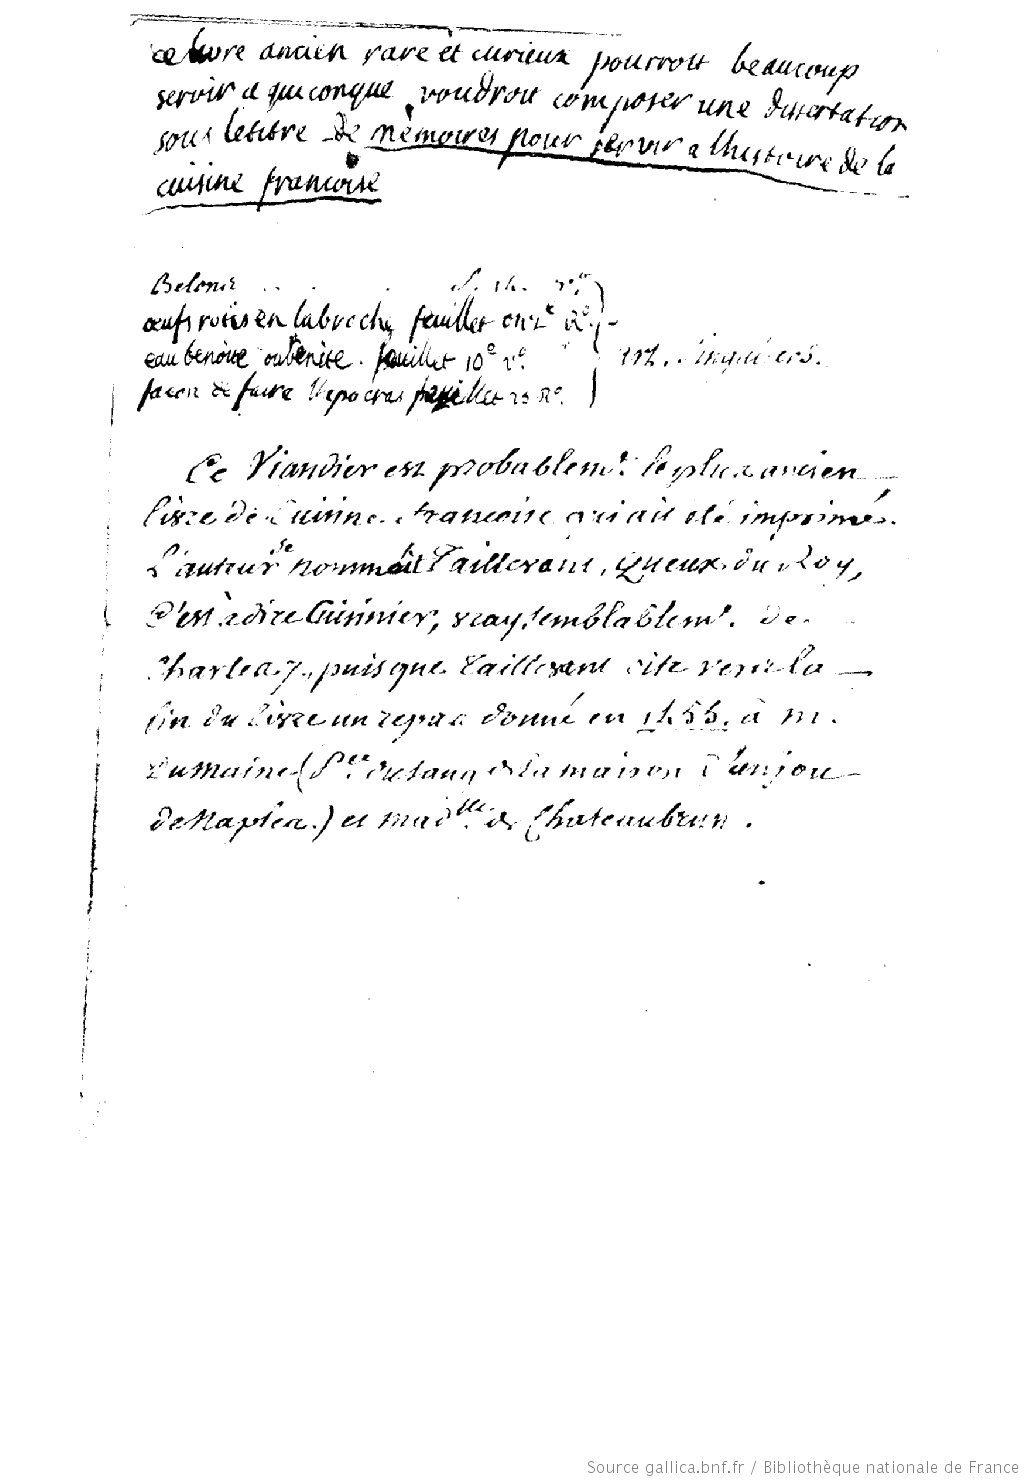 ce livre ancien rare et curieux pourroit beaucoup
servir a quiconque voudroit composer une dissertation
sous le titre de mémoires pour servir a l'histoire de la
cuisine francoise
Belonie
œufs rotis en la broche feuillet onz^e R^o
eau benoite ou benite. feuillet 10^e v^o.
facon de faire l'hepocras feuillet 23 R^o.
art. singuliers.
Ce Viandier est probablem^t. le plus ancien
livre de Cuisine francoise qui ait été imprimé.
L'auteur se nommoit Taillevant, Queux du Roy,
C'est à dire Cuisinier, vraysemblablem^t. de
Charles 7, puisque Taillevent cite vers la
fin du livre un repas donné en 1455. à m.
Dumaine (P^ce du sang de la maison d'anjou
de Naples.) et mad^lle. de Chateaubrun.
Source gallica.bnf.fr / Bibliothèque nationale de France